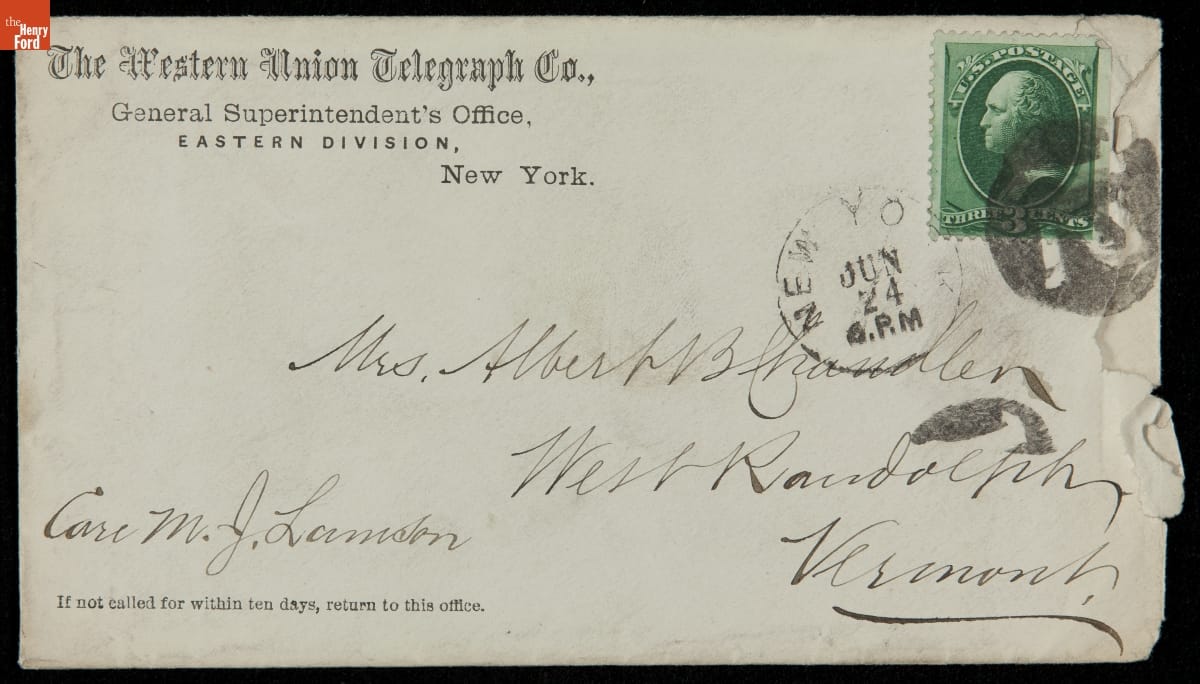 the
Henry
Ford
The Western Union Telegraph Co.,
General Superintendent's Office,
EASTERN DIVISION,
New York.
U.S. POSTAGE
THREE 3 CENTS
NEW YO
JUN
24
P.M
Mrs. Albert B Chandler
West Randolph
Vermont.
Care M. J. Lamson
If not called for within ten days, return to this office.